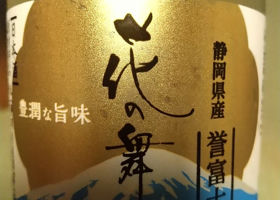 静岡県産
誉富
花の舞
豊潤な旨味
日本酒